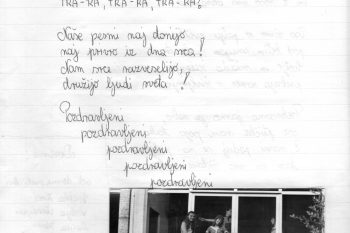 TRA-RA, TRA-RA, TRA-RA!
Naše pesmi naj donijo
naj prvo iz dna srca!
Nam srce razveselijo,
družijo ljudi sveta!
Pozdravljeni
pozdravljeni
pozdravljeni
pozdravljeni
pozdravljeni